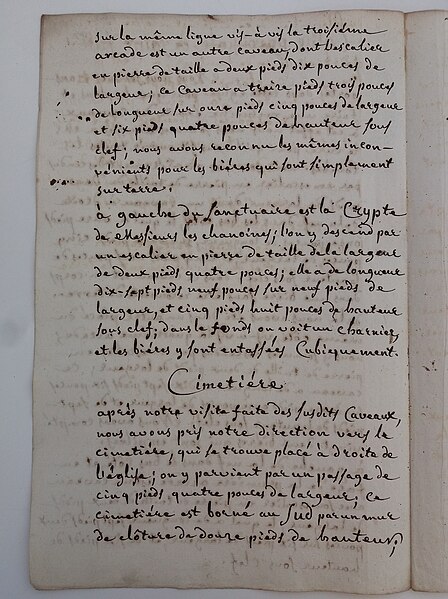 sur la même ligne vis-à-vis la troisième
arcade est un autre caveau, dont l'escalier
en pierre de taille a deux pieds dix pouces de
largeur; ce caveau a treize pieds trois pouces
de longueur sur onze pieds cinq pouces de largeur
et six pieds quatre pouces de hauteur sous
clef; nous avons reconnu les mêmes incon-
vénients pour les biéres qui sont simplement
sur terre.
à gauche du Sanctuaire est la Crypte
de Messieurs les chanoines; l'on y descend par
un escalier en pierre de taille de la largeur
de deux pieds quatre pouces; elle a de longueur
dix-sept pieds neuf pouces sur neuf pieds de
largeur, et cinq pieds huit pouces de hauteur
sous clef; dans le fonds on voit un charnier,
et les biéres y sont entassées Cubiquement.
Cimetiére
après notre visite faite des susdits Caveaux,
nous avons pris notre direction vers le
cimetiére, qui se trouve placé à droite de
l'église; on y parvient par un passage de
cinq pieds quatre pouces de largeur; ce
cimetiére est borné au Sud par un mur
de clôture de douze pieds de hauteur;